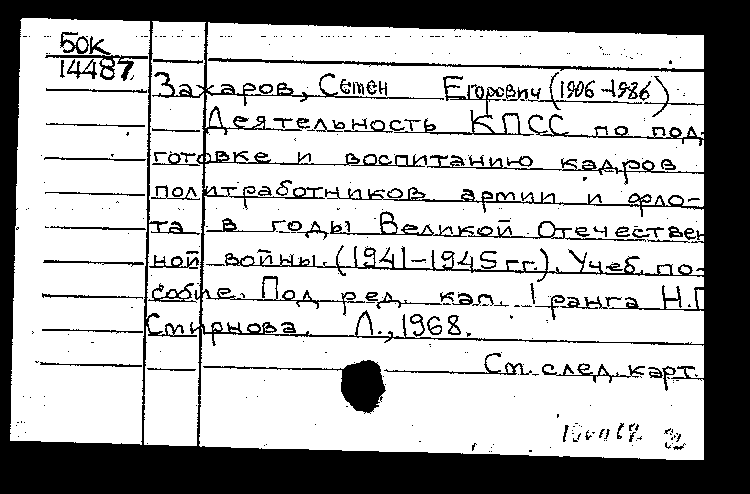 БОК
14487
Захаров, Семен Егорович (1906-1986)
Деятельность КПСС по под-
готовке и воспитанию кадров
политработников армии и фло-
та в годы Великой Отечествен
ной войны. (1941-1945 гг.). Учеб. по-
собие. Под ред. кап. 1 ранга Н.П
Смирнова. Л., 1968.
См. след. карт.